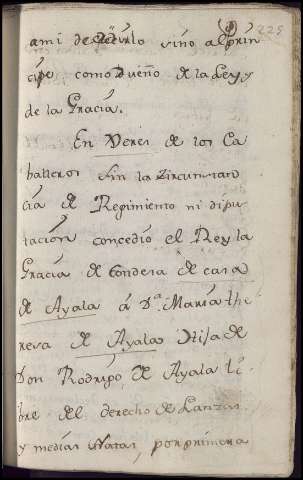 225
a mi decirlo sino al prin
cipe como Dueño de la Ley y
de la Gracia.
En Veres de los Ca
balleros sin la zircunstan
cia de Regimiento ni dipu
tación concedio el Rey la
Gracia de Condesa de casa
de Ayala á D.ª María the
resa de Ayala Hija de
Don Rodrigo de Ayala li
bre del derecho de Lanzas
y medias Natas, por primera